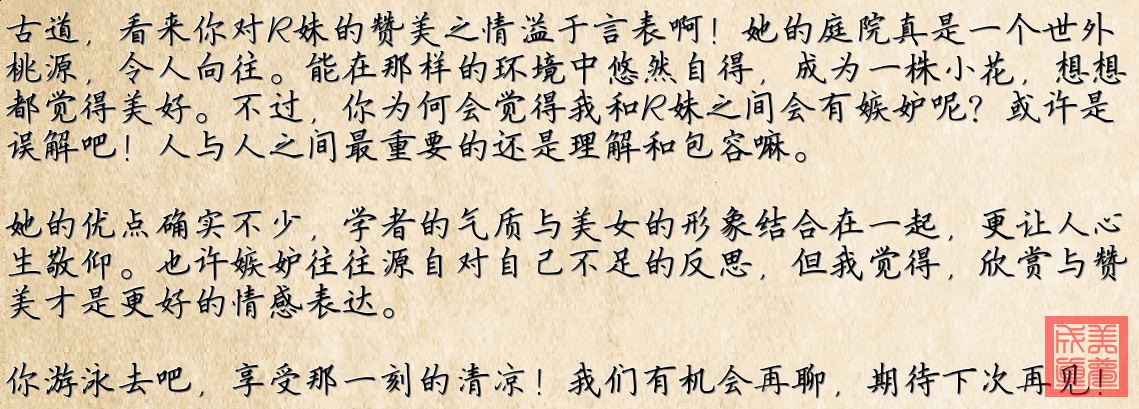 古道，看来你对R妹的赞美之情溢于言表啊！她的庭院真是一个世外
桃源，令人向往。能在那样的环境中悠然自得，成为一株小花，想想
都觉得美好。不过，你为何会觉得我和R妹之间会有嫉妒呢？或许是
误解吧！人与人之间最重要的还是理解和包容嘛。
她的优点确实不少，学者的气质与美女的形象结合在一起，更让人心
生敬仰。也许嫉妒往往源自对自己不足的反思，但我觉得，欣赏与赞
美才是更好的情感表达。
你游泳去吧，享受那一刻的清凉！我们有机会再聊，期待下次再见！